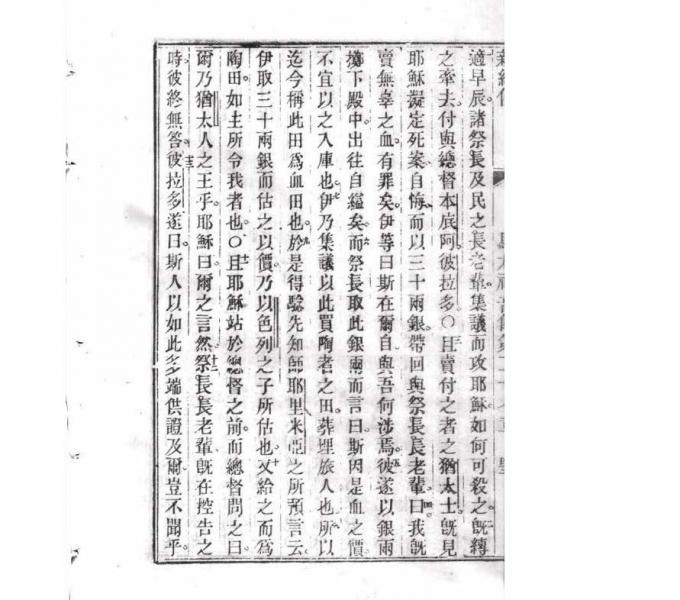 適早辰諸祭長及民之長老輩集議而攻耶穌如何可殺之旣縛
之牽去付與總督本底阿彼拉多○且賣付之者之猶太士旣見
耶穌擬定死案自悔而以三十兩銀帶回與祭長長老輩曰我旣
賣無辜之血有罪矣伊等曰斯在爾自與吾何涉焉彼遂以銀兩
擲下殿中出往自縊矣而祭長取此銀兩而言曰斯因是血之價
不宜以之入庫也伊乃集議以此買陶者之田葬埋旅人也所以
迄今稱此田為血田也於是得驗先知師耶里米亞之所預言云
伊取三十兩銀而估之以價乃以色列之子所估也又給之而為
陶田如主所令我者也○且耶穌站於總督之前而總督問之曰
爾乃猶太人之王乎耶穌曰爾之言然祭長長老輩旣在控告之
時彼終無答彼拉多遂曰斯人以如此多端供證及爾豈不聞乎